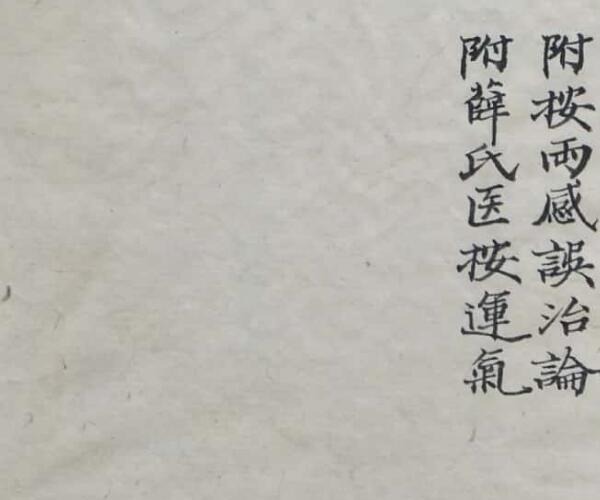 附按両感誤治論
附薛氏医按運氣